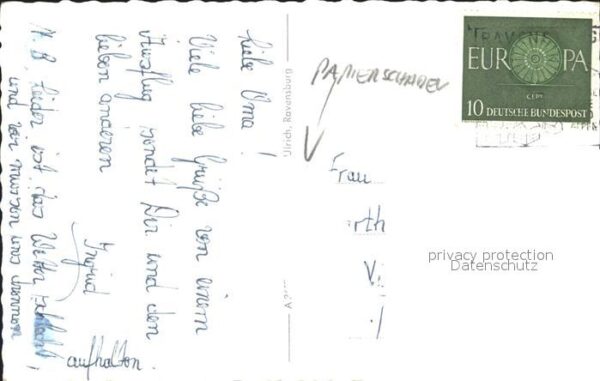 Liebe Oma!
Viele liebe Grüße von einem
Ausflug sendet Dir und den
lieben anderen
Ingrid
N.B. Leider ist das Wetter schlecht,
und wir müssen uns drinnen
aufhalten.
Ulrich, Ravensburg
PAPIERSCHADEN
EUROPA
CEPT
10 DEUTSCHE BUNDESPOST
Frau
privacy protection
Datenschutz